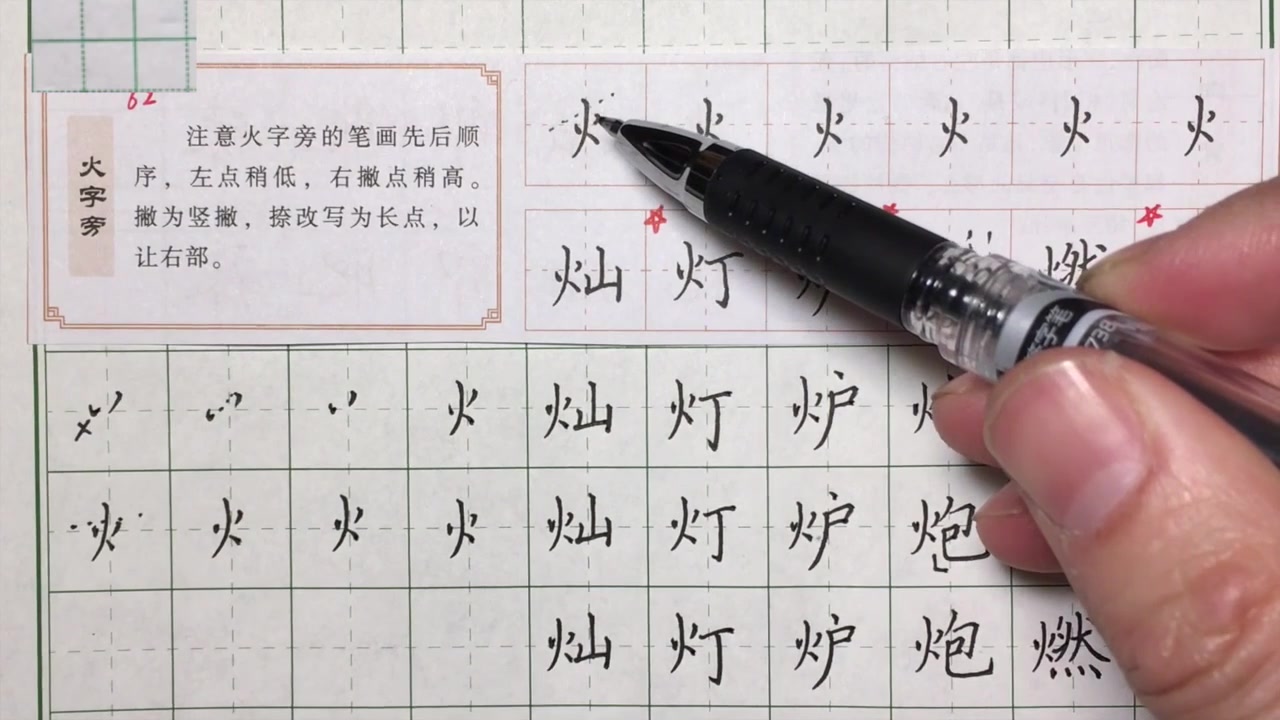 62
火字旁
注意火字旁的笔画先后顺
序，左点稍低，右撇点稍高。
撇为竖撇，捺改写为长点，以
让右部。
火 火 火 火 火 火
灿 灯 燃
火 灿 灯 炉
火 火 火 火 灿 灯 炉 炮
灿 灯 炉 炮 燃
字笔